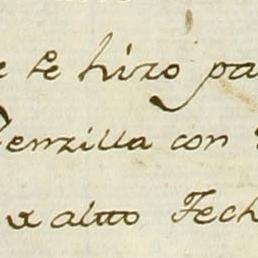 e se hizo pa
Genzilla con
alto Fech